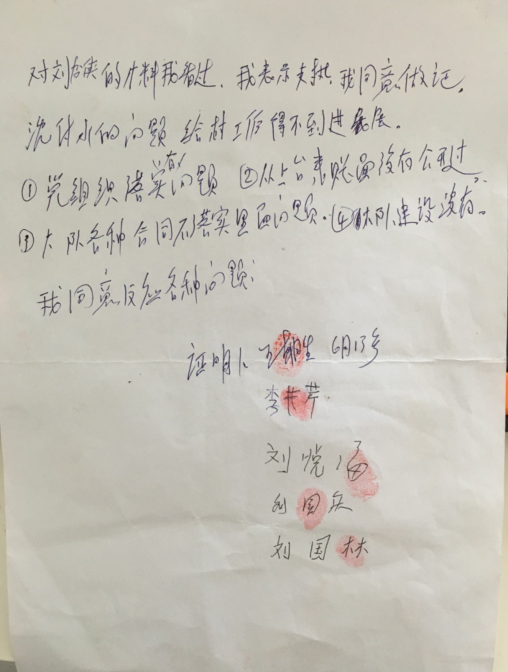 对刘治庚的材料我看过、我表示支持、我同意做证。
沈付水的问题 给村工作得不到进展。
①党组织落实有的问题 ②从上台来账面没有公开过
③大队各种合同不落实里面的问题·④队建设没有。
我同意反应各种问题:
证明人 王 生 6月13号
李 芹
刘 
刘国兵
刘国林